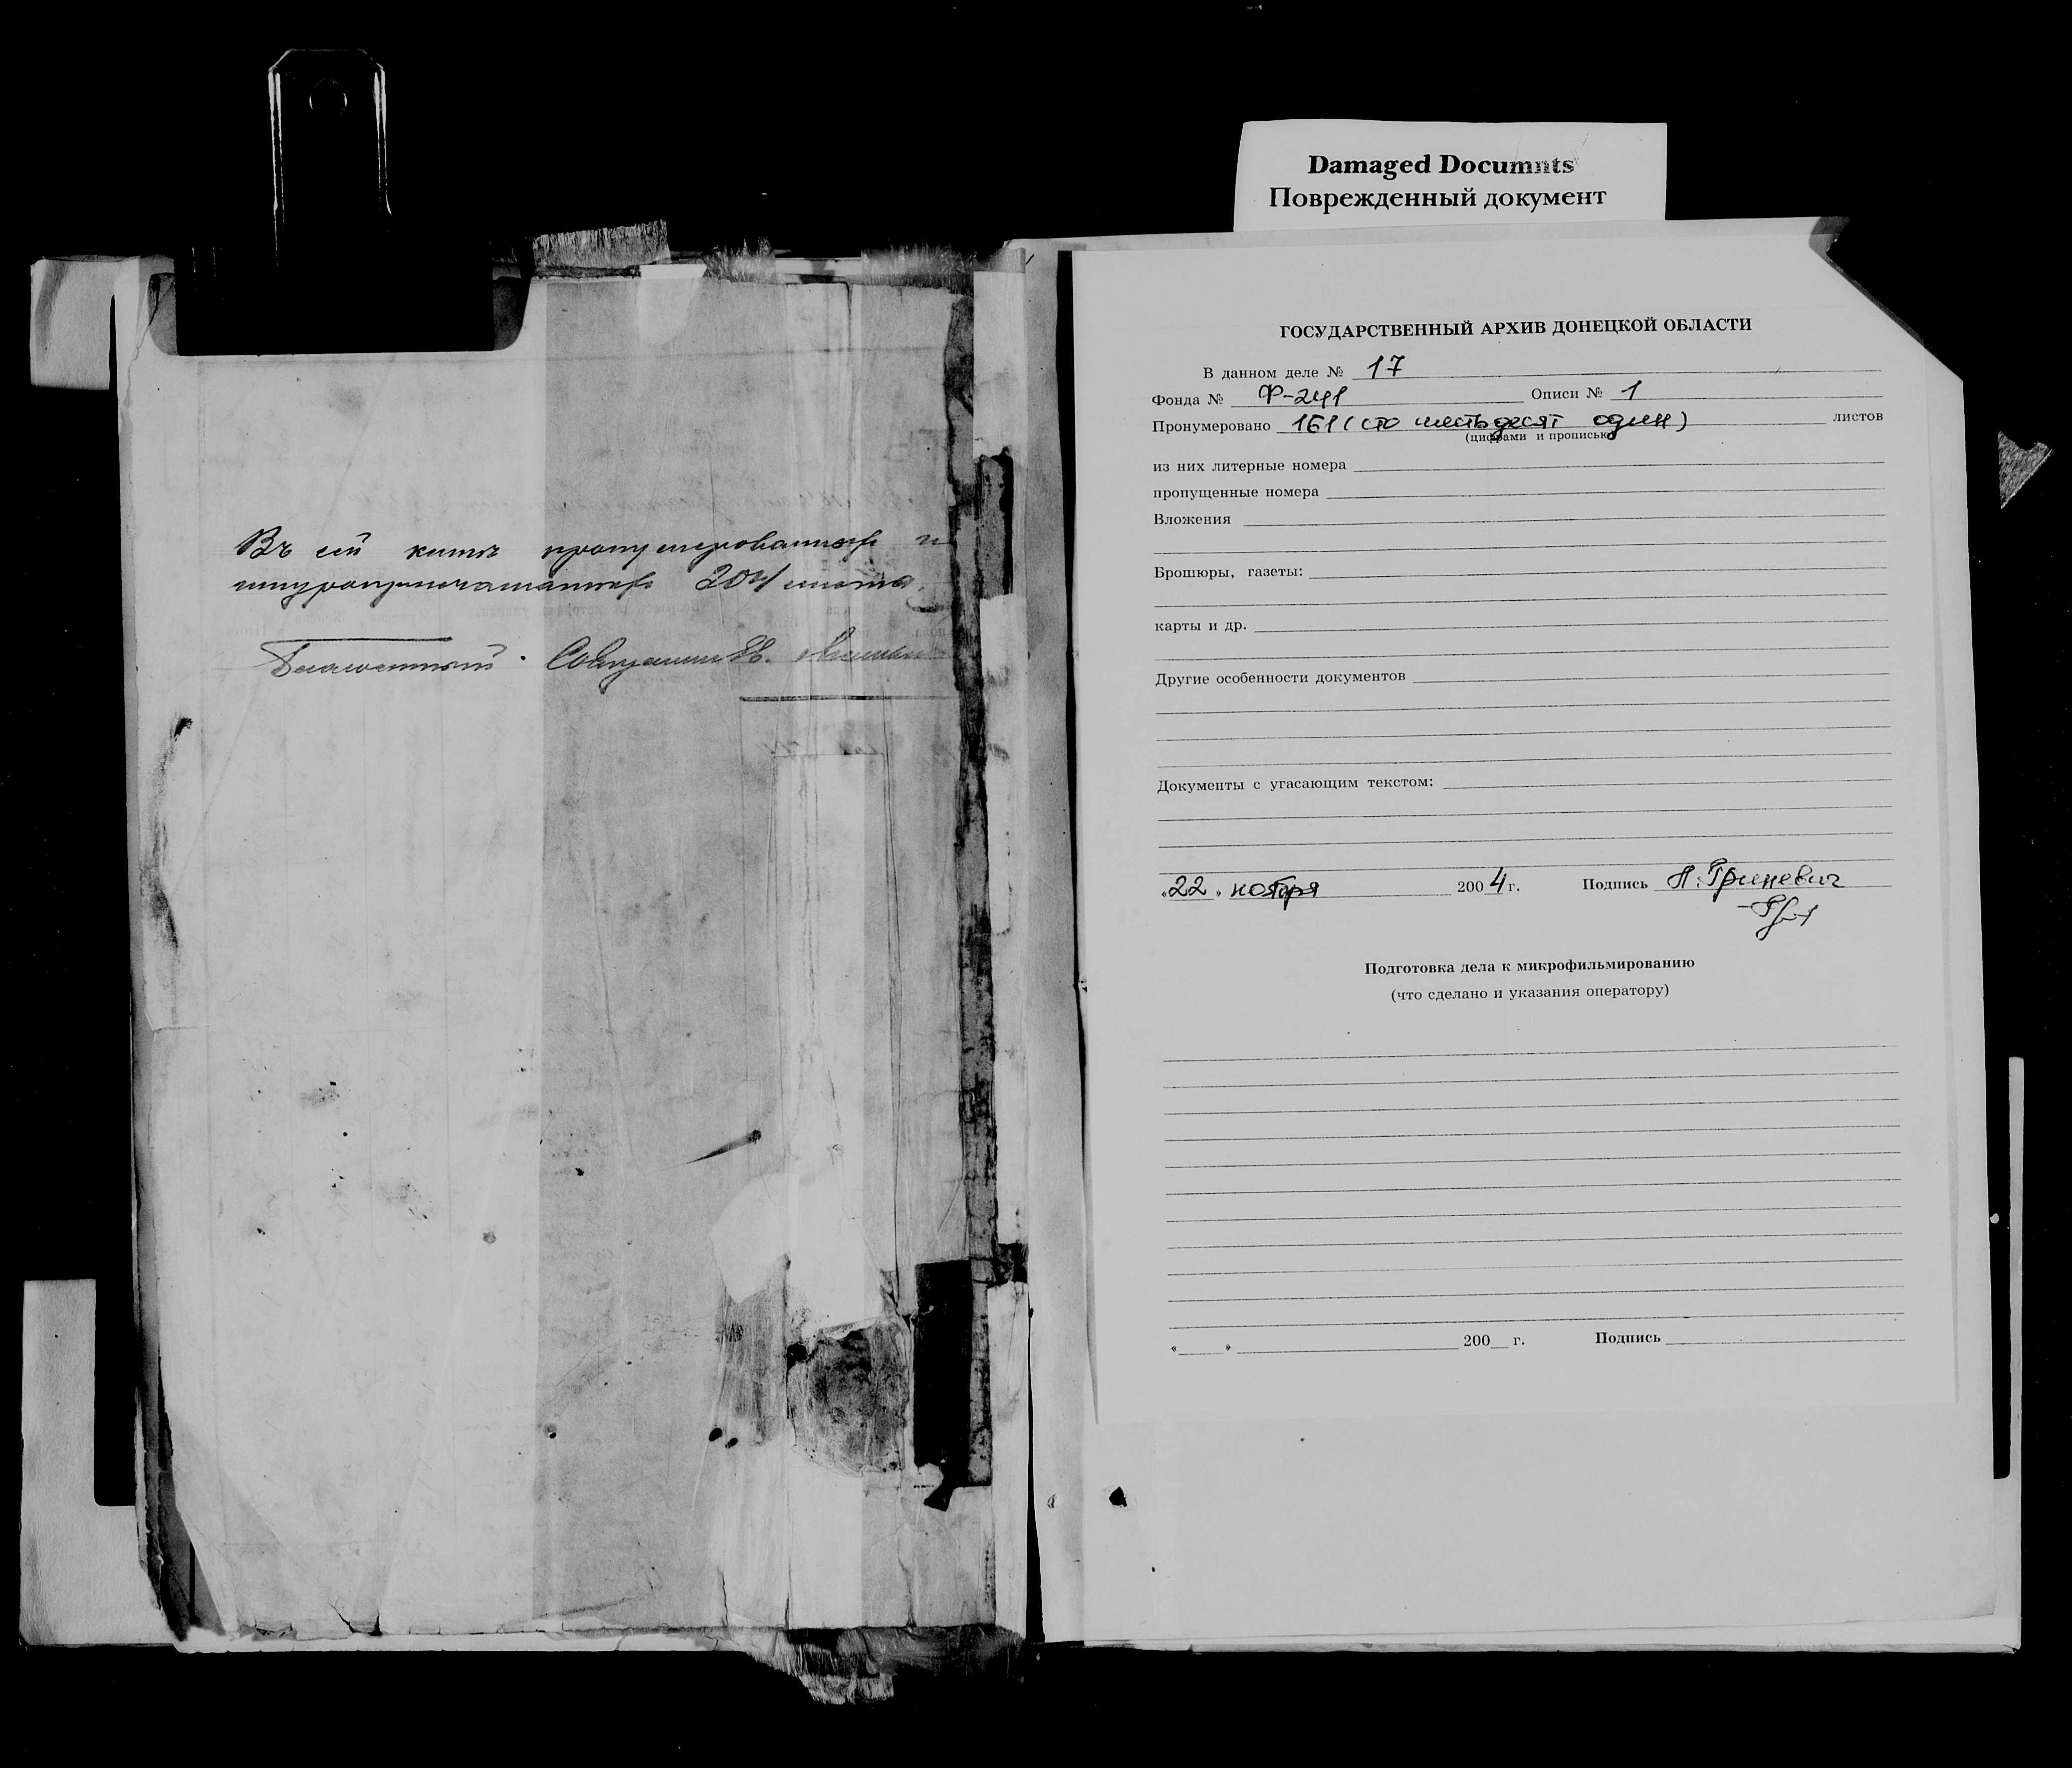 Damaged Documnts
Поврежденный документ
Въ сей книгѣ пронумерованныхъ и
шнуропричатанныхъ листа
ГОСУДАРСТВЕННЫЙ АРХИВ ДОНЕЦКОЙ ОБЛАСТИ
В данном деле № 17
Фонда № Ф-241 Описи № 1
Пронумеровано 161 (сто шестьдесят один) листов
(цифрами и прописью)
из них литерные номера
пропущенные номера
Вложения
Брошюры, газеты:
карты и др.
Другие особенности документов
Документы с угасающим текстом:
«22» ноября 2004 г. Подпись Л. Гриневич
Подготовка дела к микрофильмированию
(что сделано и указания оператору)
« » 200 г. Подпись